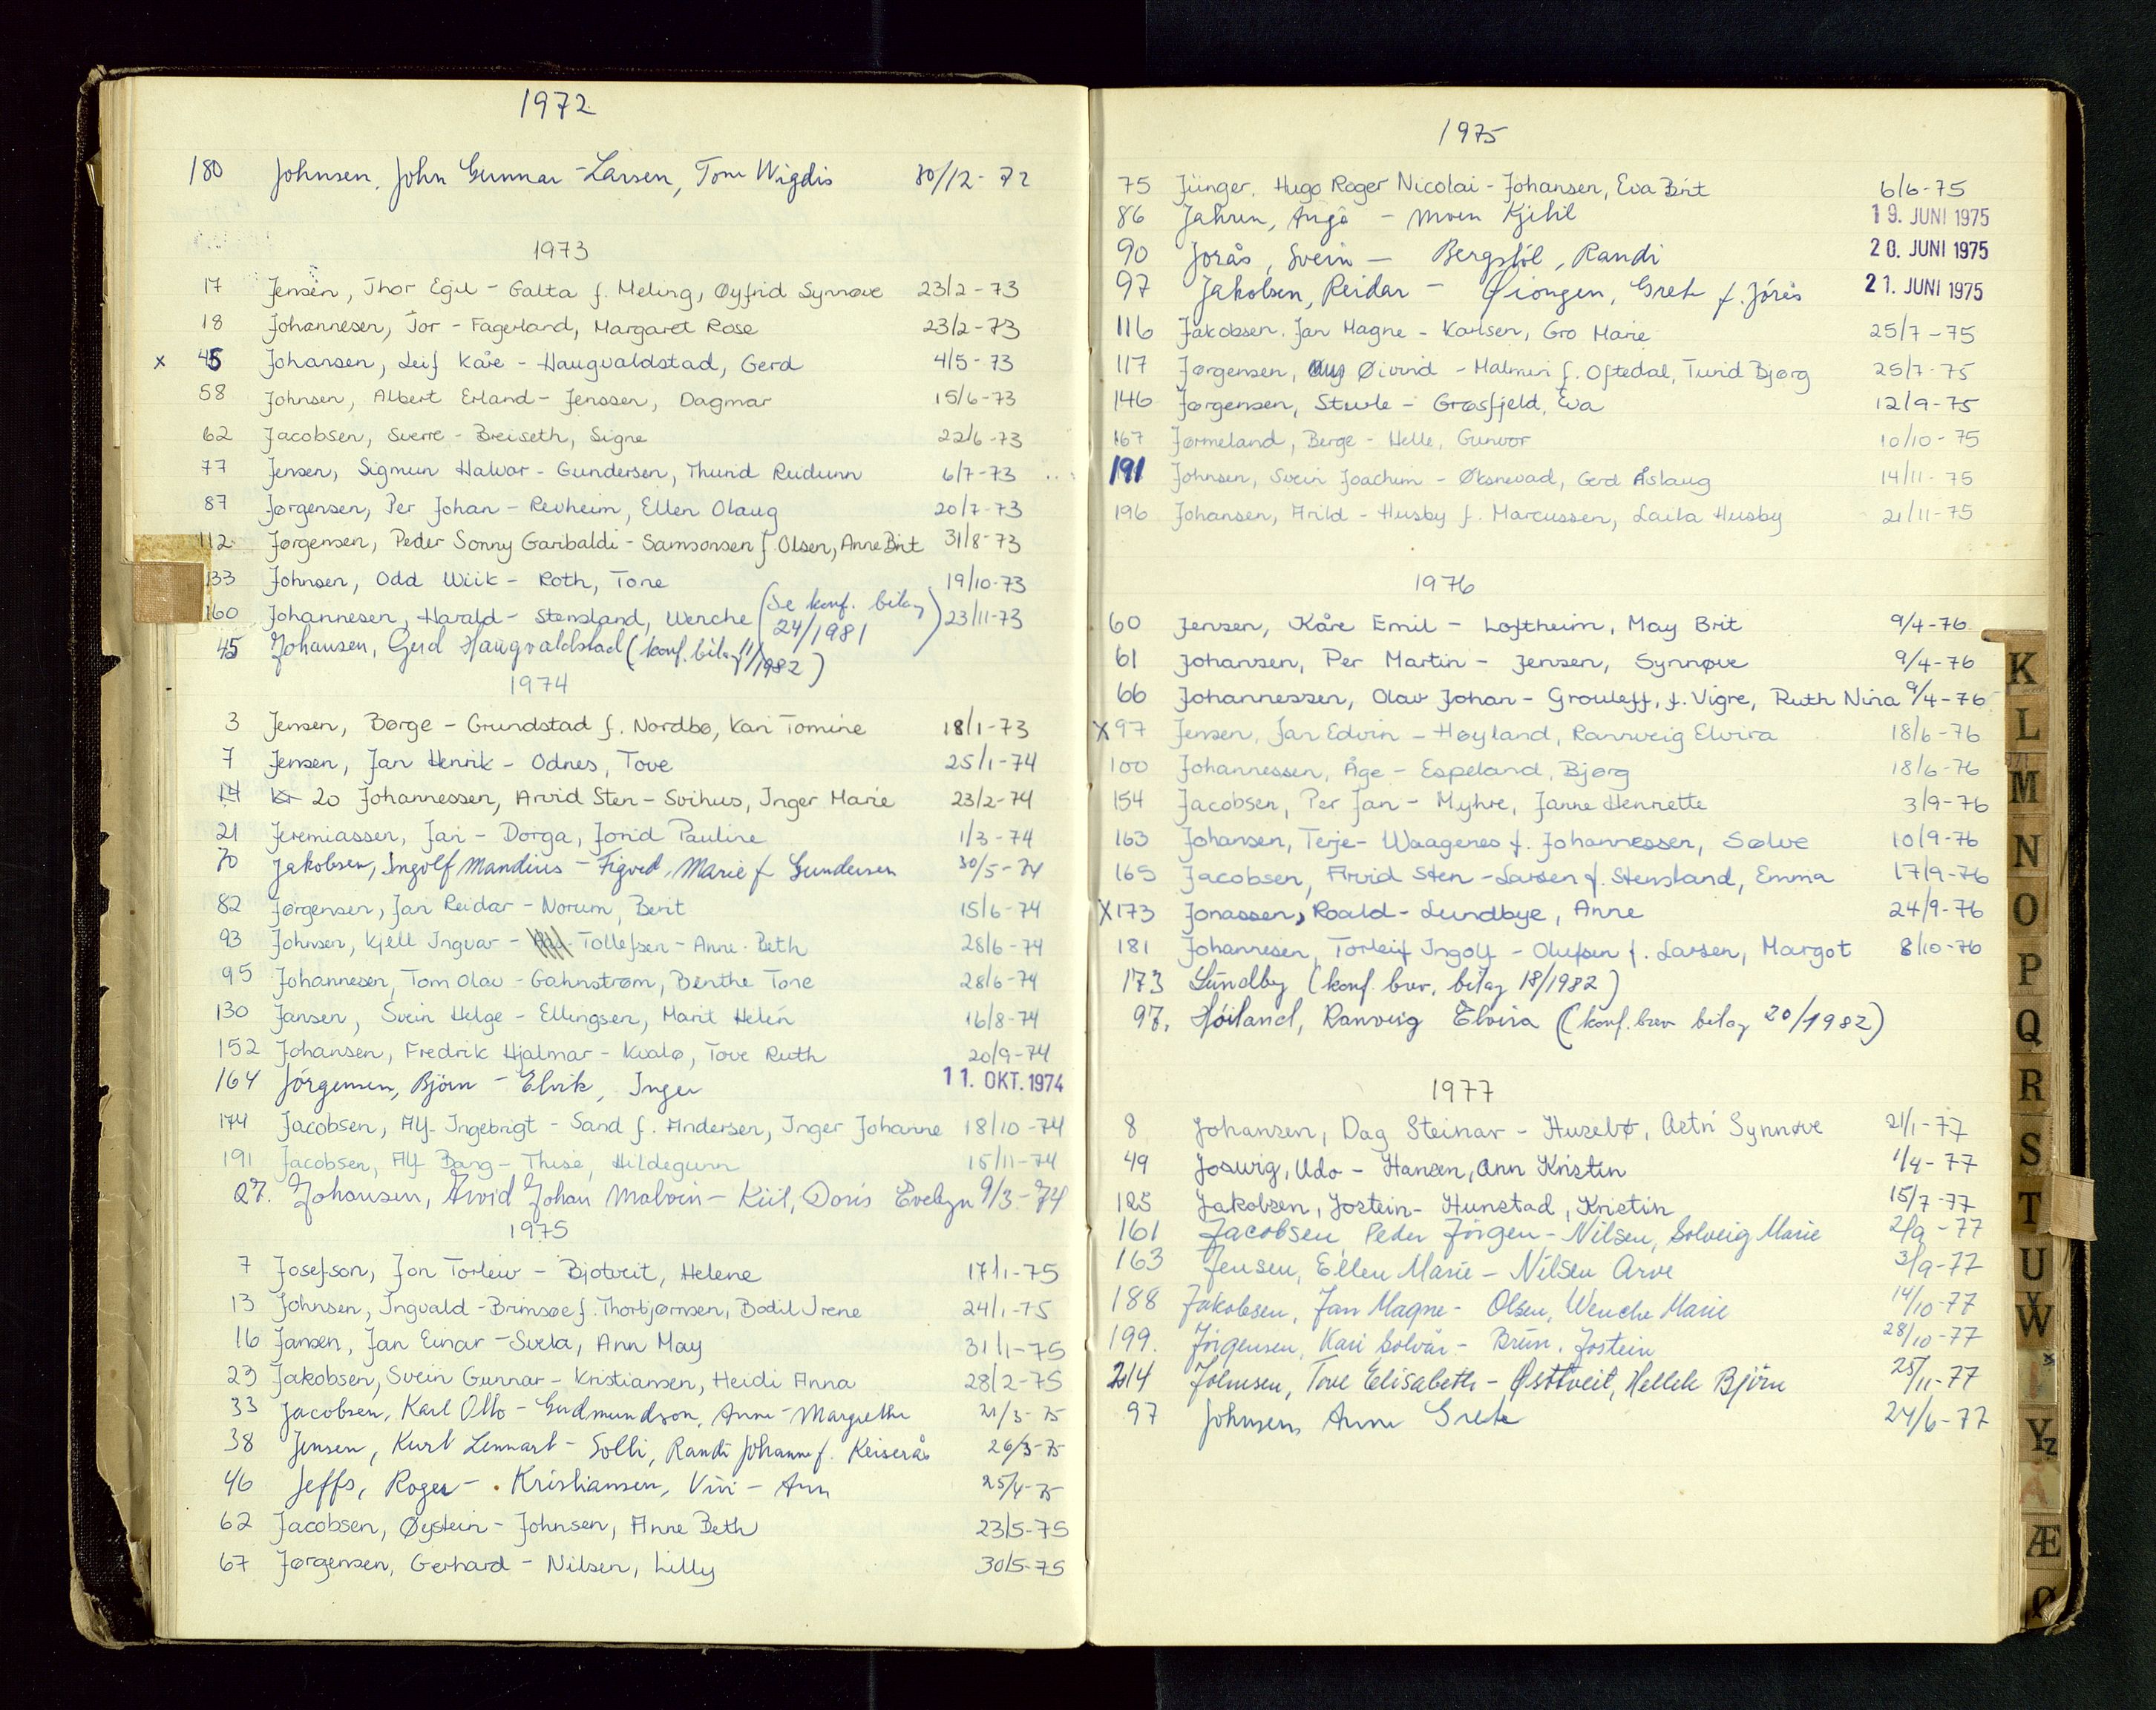 1972
180 Johnsen, John Gunnar - Larsen, Tone Wigdis 30/12-72
1973
17 Jensen, Thor Egil - Galta f. Meling, Øyfrid Synnøve 23/2-73
18 Johannesen, Tor - Fagerland, Margaret Rose 23/2-73
x 45 Johansen, Leif Kåre - Haugvaldstad, Gerd 4/5-73
58 Johnsen, Albert Erland - Jenssen, Dagmar 15/6-73
62 Jacobsen, Sverre - Breiseth, Signe 22/6-73
77 Jensen, Sigmun Halvor - Gundersen, Thund Reidunn 6/7-73
87 Jørgensen, Per Johan - Revheim, Ellen Olaug 20/7-73
112 Jørgensen, Peder Sonny Garibaldi - Samsonsen f. Olsen, Anne Brit 31/8-73
133 Johnsen, Odd Wiik - Roth, Tone 19/10-73
160 Johannesen, Harald - Stensland, Wenche (Se konf. bilag 24/1981) 23/11-73
45 Johansen, Gerd Haugvaldstad (konf. bilag 11/1982)
1974
3 Jensen, Børge - Grundstad f. Nordbø, Kari Tomine 18/1-73
7 Jensen, Jan Henrik - Odnes, Tove 25/1-74
14 20 Johannessen, Arvid Sten - Svihus, Inger Marie 23/2-74
21 Jeremiassen, Jan - Dorga, Jorid Pauline 1/3-74
70 Jakobsen, Ingolf Mandius - Figved, Marie f Gundersen 30/5-74
82 Jørgensen, Jan Reidar - Norum, Berit 15/6-74
93 Johnsen, Kjell Ingvar - Tollefsen - Anne-Beth 28/6-74
95 Johannesen, Tom Olav - Gahnstrøm, Benthe Tone 28/6-74
130 Jansen, Svein Helge - Ellingsen, Marit Helén 16/8-74
152 Johansen, Fredrik Hjalmar - Kvalø, Tove Ruth 20/9-74
164 Jörgensen, Björn - Elvik, Inger 11. OKT. 1974
174 Jacobsen, Alf Ingebrigt - Sand f. Andersen, Inger Johanne 18/10-74
191 Jacobsen, Alf Bang - Thise, Hildegunn 15/11-74
27. Johansen, Arvid Johan Malvin - Kiil, Doris Evelyn 9/3-74
1975
7 Josefson, Jon Torleiv - Bjotveit, Helene 17/1-75
13 Johnsen, Ingvald - Brimsøe f. Thorbjørnsen, Bodil Irene 24/1-75
16 Jansen, Jan Einar - Svela, Ann May 31/1-75
23 Jakobsen, Svein Gunnar - Kristiansen, Heidi Anna 28/2-75
33 Jacobsen, Karl Otto - Gudmundson, Anne-Margrethe 21/3-75
38 Jensen, Kurt Lennart - Solli, Randi Johanne f. Keiserås 26/3-75
46 Jeffs, Roger - Kristiansen, Vivi-Ann 25/4-75
62 Jacobsen, Øystein - Johnsen, Anne Beth 23/5-75
67 Jørgensen, Gerhard - Nilsen, Lilly 30/5-75
1975
75 Jünger, Hugo Roger Nicolai - Johansen, Eva Brit 6/6-75
86 Jahren, Anja - Moen Kjetil 19. JUNI 1975
90 Jorås, Svein - Bergstøl, Randi 20. JUNI 1975
97 Jakobsen, Reidar - Qiongen, Grete f. Jöres 21. JUNI 1975
116 Jakobsen, Jan Magne - Karlsen, Gro Marie 25/7-75
117 Jørgensen, Øivind - Malmin f. Oftedal, Turid Bjørg 25/7-75
146 Jørgensen, Sturle - Grøsfjeld, Eva 12/9-75
167 Jørmeland, Berge - Helle, Gunvor 10/10-75
191 Johnsen, Svein Joachim - Øksnevad, Gerd Åslaug 14/11-75
196 Johansen, Arild - Husby f. Marcussen, Laila Husby 21/11-75
1976
60 Jensen, Kåre Emil - Loftheim, May Brit 9/4-76
61 Johansen, Per Martin - Jensen, Synnøve 9/4-76
66 Johannessen, Olav Johan - Grouleff, f. Vigre, Ruth Nina 9/4-76
X 97 Jensen, Jan Edvin - Høyland, Rannveig Elvira 18/6-76
100 Johannessen, Åge - Espeland, Bjørg 18/6-76
154 Jacobsen, Per Jan - Myhre, Janne Henriette 3/9-76
163 Johansen, Terje - Waagenes f. Johannessen, Sølve 10/9-76
165 Jacobsen, Arvid Sten - Larsen f. Stensland, Emma 17/9-76
X 173 Jonassen, Roald - Lundbye, Anne 24/9-76
181 Johannesen, Torleif Ingolf - Olufsen f. Larsen, Margot 8/10-76
173 Lundby (konf. brev, bilag 18/1982)
97. Höiland, Ranveig Elvira (konf. brev bilag 20/1982)
1977
8 Johansen, Dag Steinar - Husebø, Astri Synnøve 21/1-77
49 Joswig, Udo - Hansen, Ann Kristin 1/4-77
125 Jakobsen, Jostein - Hunstad, Kristin 15/7-77
161 Jacobsen Peder Jörgen - Nilsen, Solveig Marie 2/9-77
163 Jensen, Ellen Marie - Nilsen Arve 3/9-77
188 Jakobsen, Jan Magne - Olsen, Wenche Marie 14/10-77
199. Jörgensen, Kari Solvår - Brun, Jostein 28/10-77
214 Johnsen, Tove Elisabeth - Østtveit, Hellek Björn 25/11-77
97 Johnsen Anne Grete 24/6-77
K
L
M
N
O
P
Q
R
S
T
U
V
W
X
Y
Z
Ä
Æ
Ø